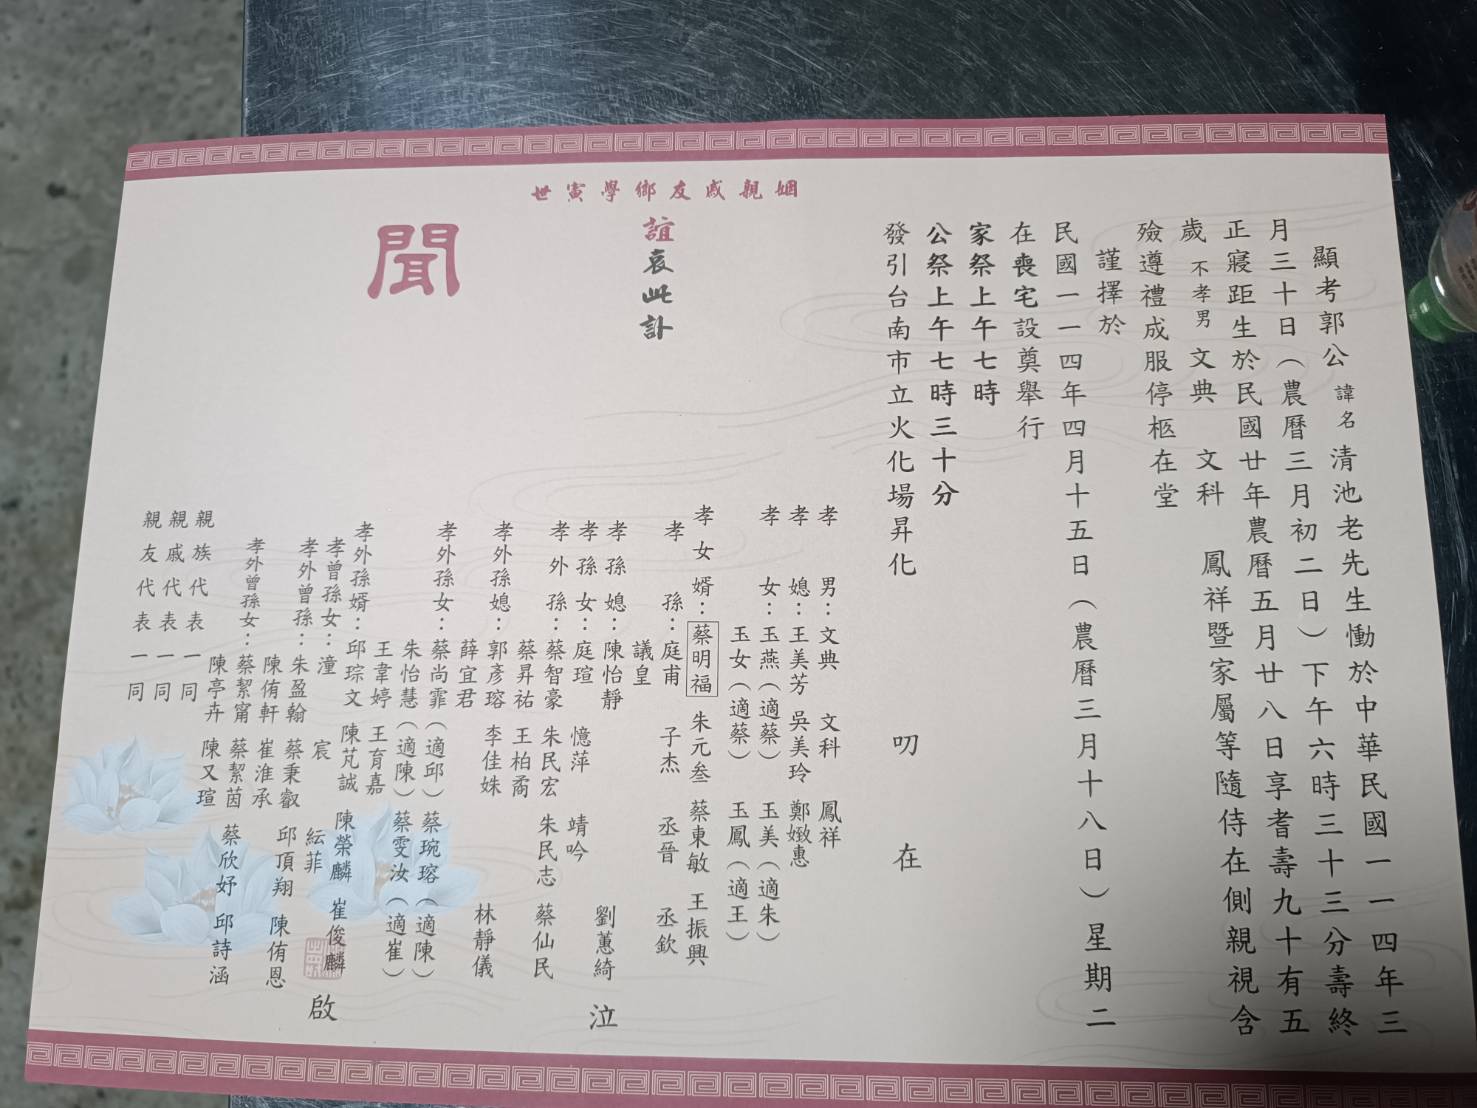 顯考郭公諱名清池老先生慟於中華民國一一四年三
月三十日（農曆三月初二日）下午六時三十三分壽終
正寢距生於民國廿年農曆五月廿八日享耆壽九十有五
歲不孝男文典 文科 鳳祥暨家屬等隨侍在側親視含
殮遵禮成服停柩在堂
謹擇於
民國一一四年四月十五日（農曆三月十八日）星期二
在喪宅設奠舉行
家祭上午七時
公祭上午七時三十分
發引台南市立火化場昇化
叨在
姻親戚友鄉學寅世
誼哀此訃
聞
孝男：文典 文科 鳳祥
孝媳：王美芳 吳美玲 鄭媺惠
孝女：玉燕（適蔡） 玉美（適朱）
玉女（適蔡） 玉鳳（適王）
孝女婿：蔡明福 朱元叁 蔡東敏 王振興
孝孫：庭甫 子杰 丞晉 丞欽
議皇
孝孫媳：陳怡靜 劉蕙綺
孝孫女：庭瑄 憶萍 靖吟
孝外孫：蔡智豪 朱民宏 朱民志 蔡仙民
蔡昇祐 王柏矞
孝外孫媳：郭彥瑢 李佳姝 林靜儀
薛宜君
孝外孫女：蔡尚霏（適邱） 蔡琬瑢（適陳）
朱怡慧（適陳） 蔡雯汝（適崔）
王韋婷 王育嘉
孝外孫婿：邱琮文 陳芃誠 陳榮麟 崔俊麟
孝曾孫女：潼 宸 紜菲
孝外曾孫：朱盈翰 蔡秉叡 邱頂翔 陳侑恩
陳侑軒 崔淮承
孝外曾孫女：蔡絜甯 蔡絜茵 蔡欣妤 邱詩涵
陳亭卉 陳又瑄
親族代表一同
親戚代表一同
親友代表一同
泣
啟